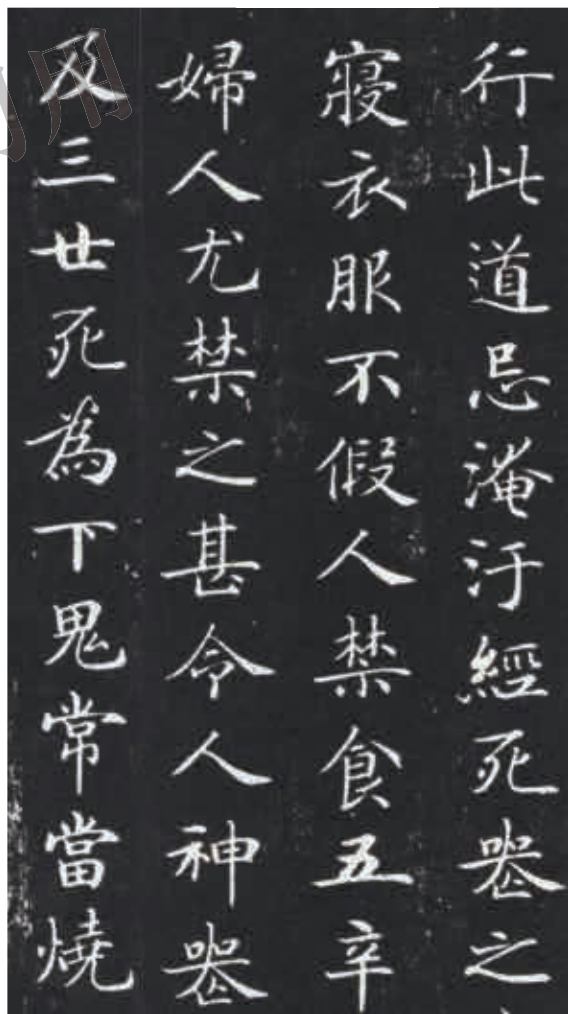 行此道忌淹汙經死喪之
寢衣服不假人禁食五辛
婦人尤禁之甚令人神喪
及三世死為下鬼常當燒
用